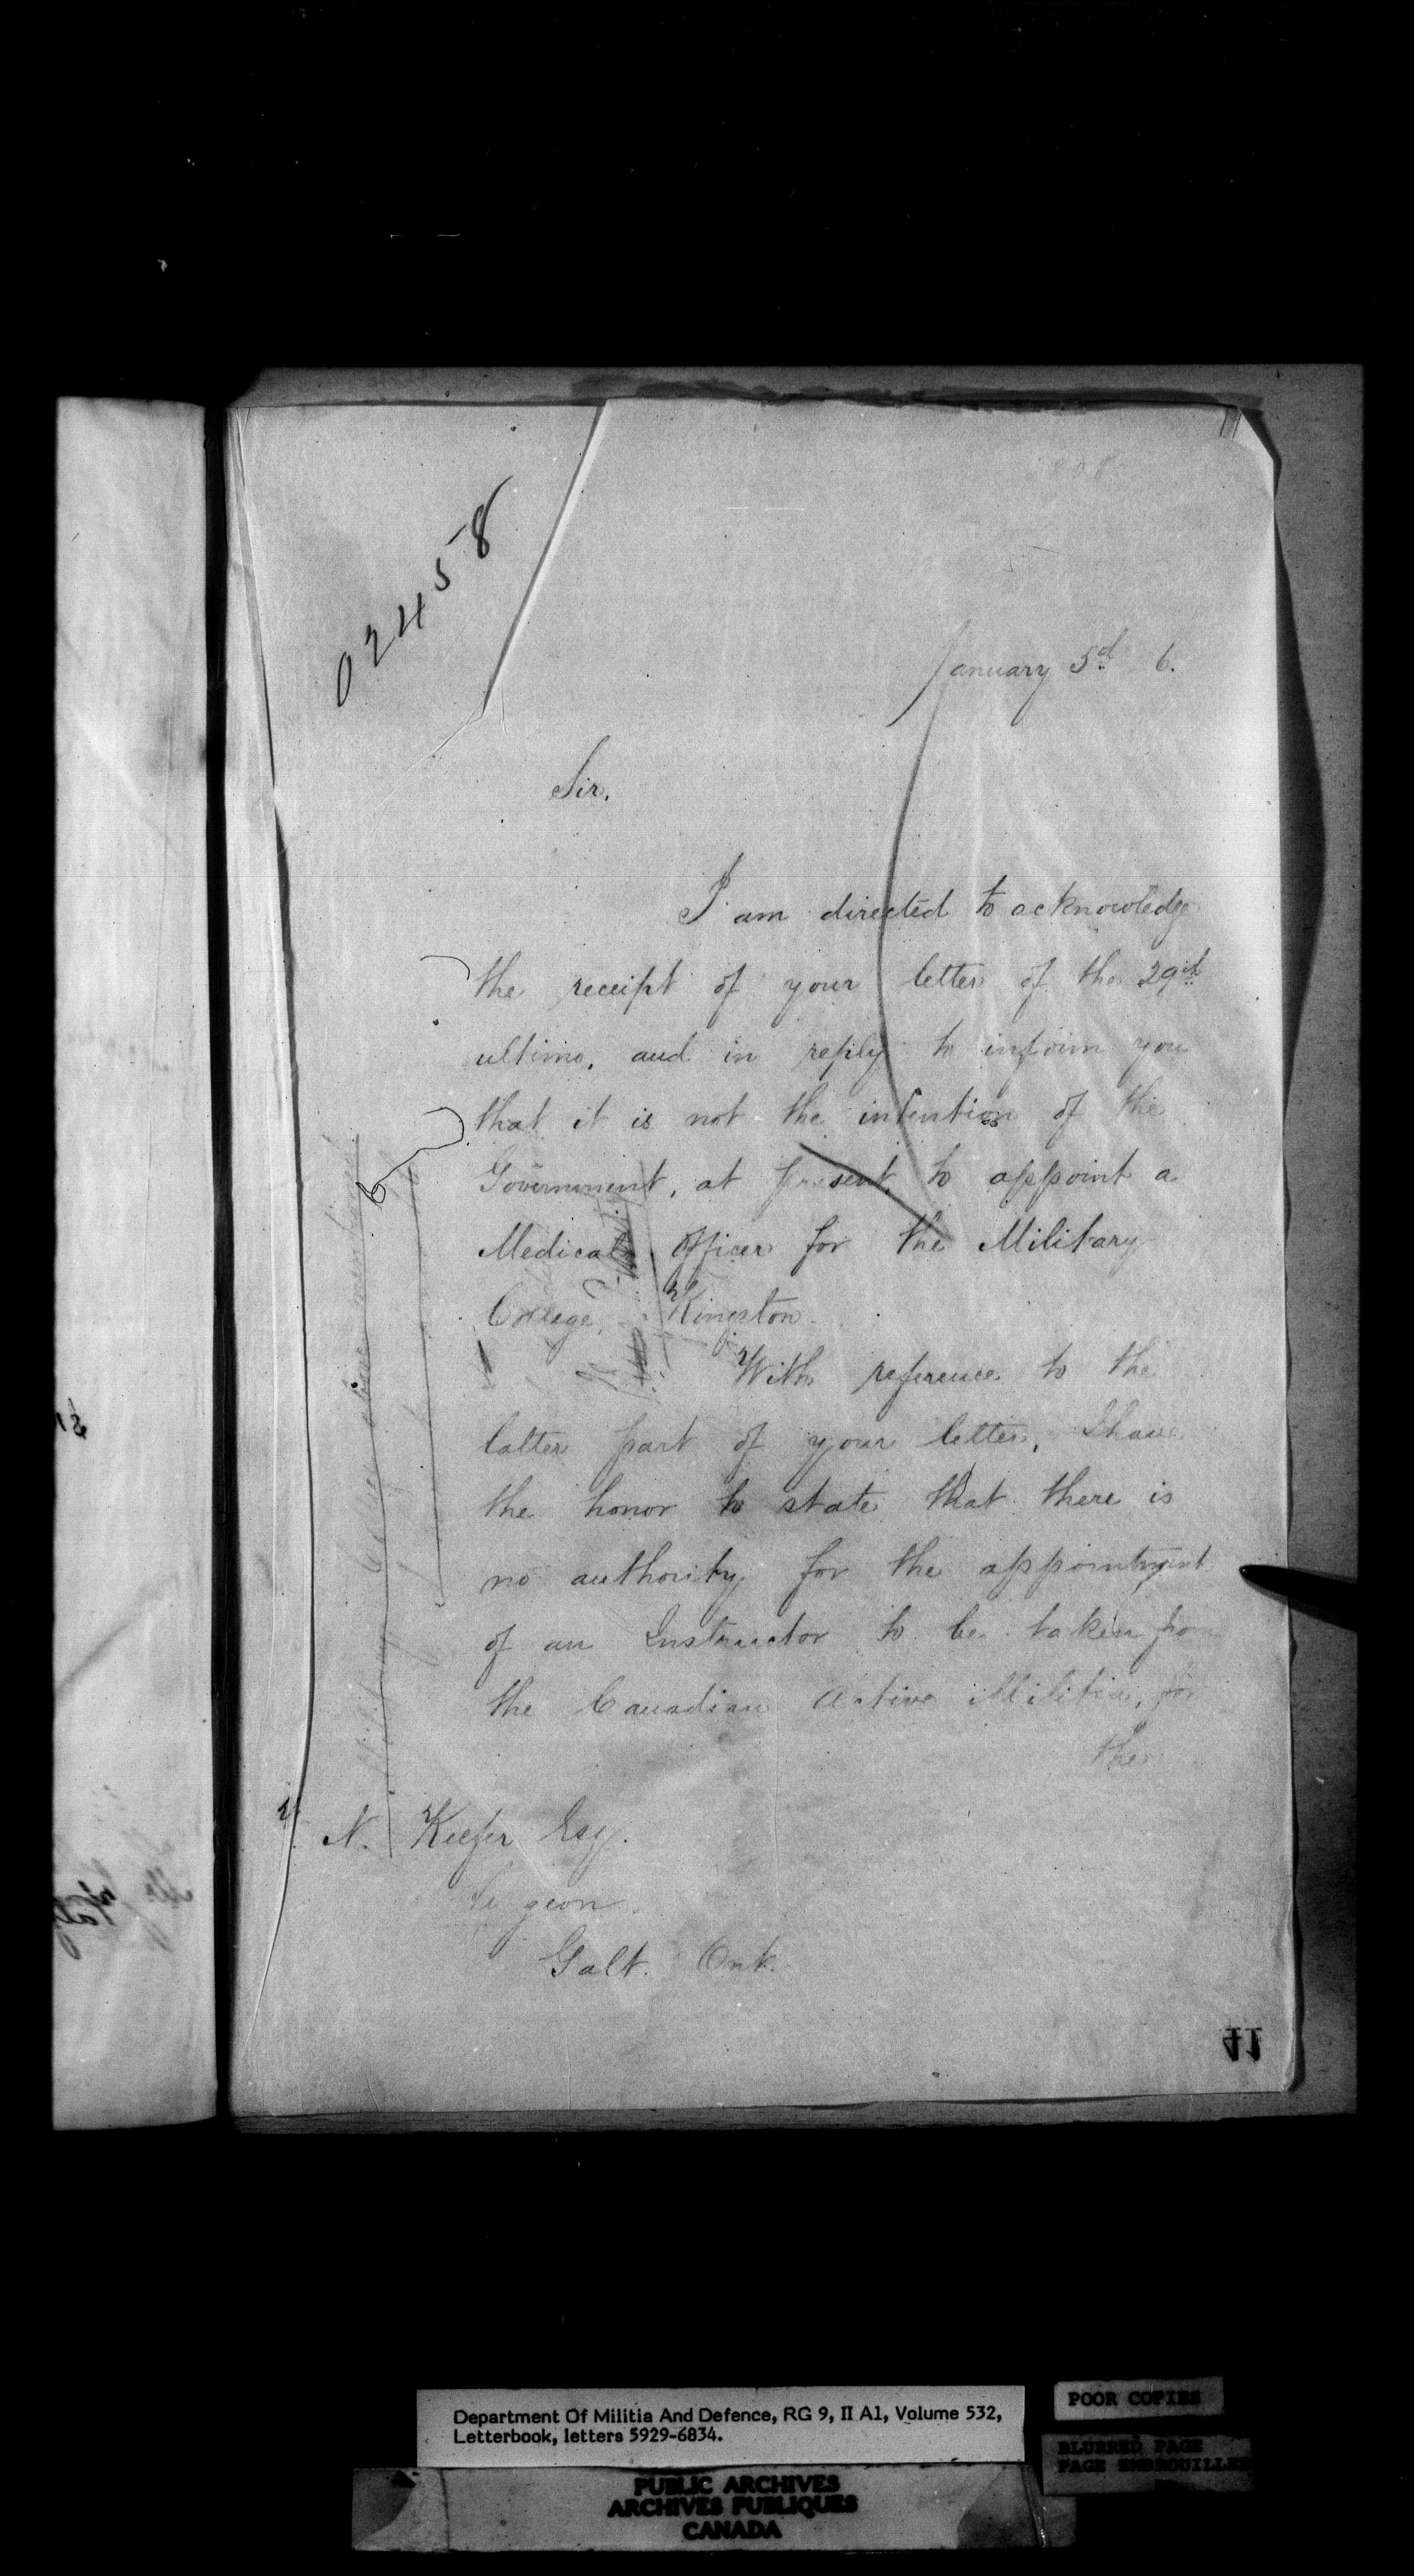 02458
January 5th 6.
Sir,
I am directed to acknowledge
the receipt of your letter of the 29th
ultimo, and in reply to inform you
that it is not the intention of the
Government, at present, to appoint a
Medical Officer for the Military
College, Kingston.
With reference to the
latter part of your letter, I have
the honor to state that there is
no authority for the appointment
of an Instructor to be taken from
the Canadian Active Militia, for
the
N. Keefer Esq.
Galt. Ont.
41
Department Of Militia And Defence, RG 9, II A1, Volume 532,
Letterbook, letters 5929-6834.
POOR COPIES
BLURRED PAGE
PAGE EMBROUILLEE
PUBLIC ARCHIVES
ARCHIVES PUBLIQUES
CANADA